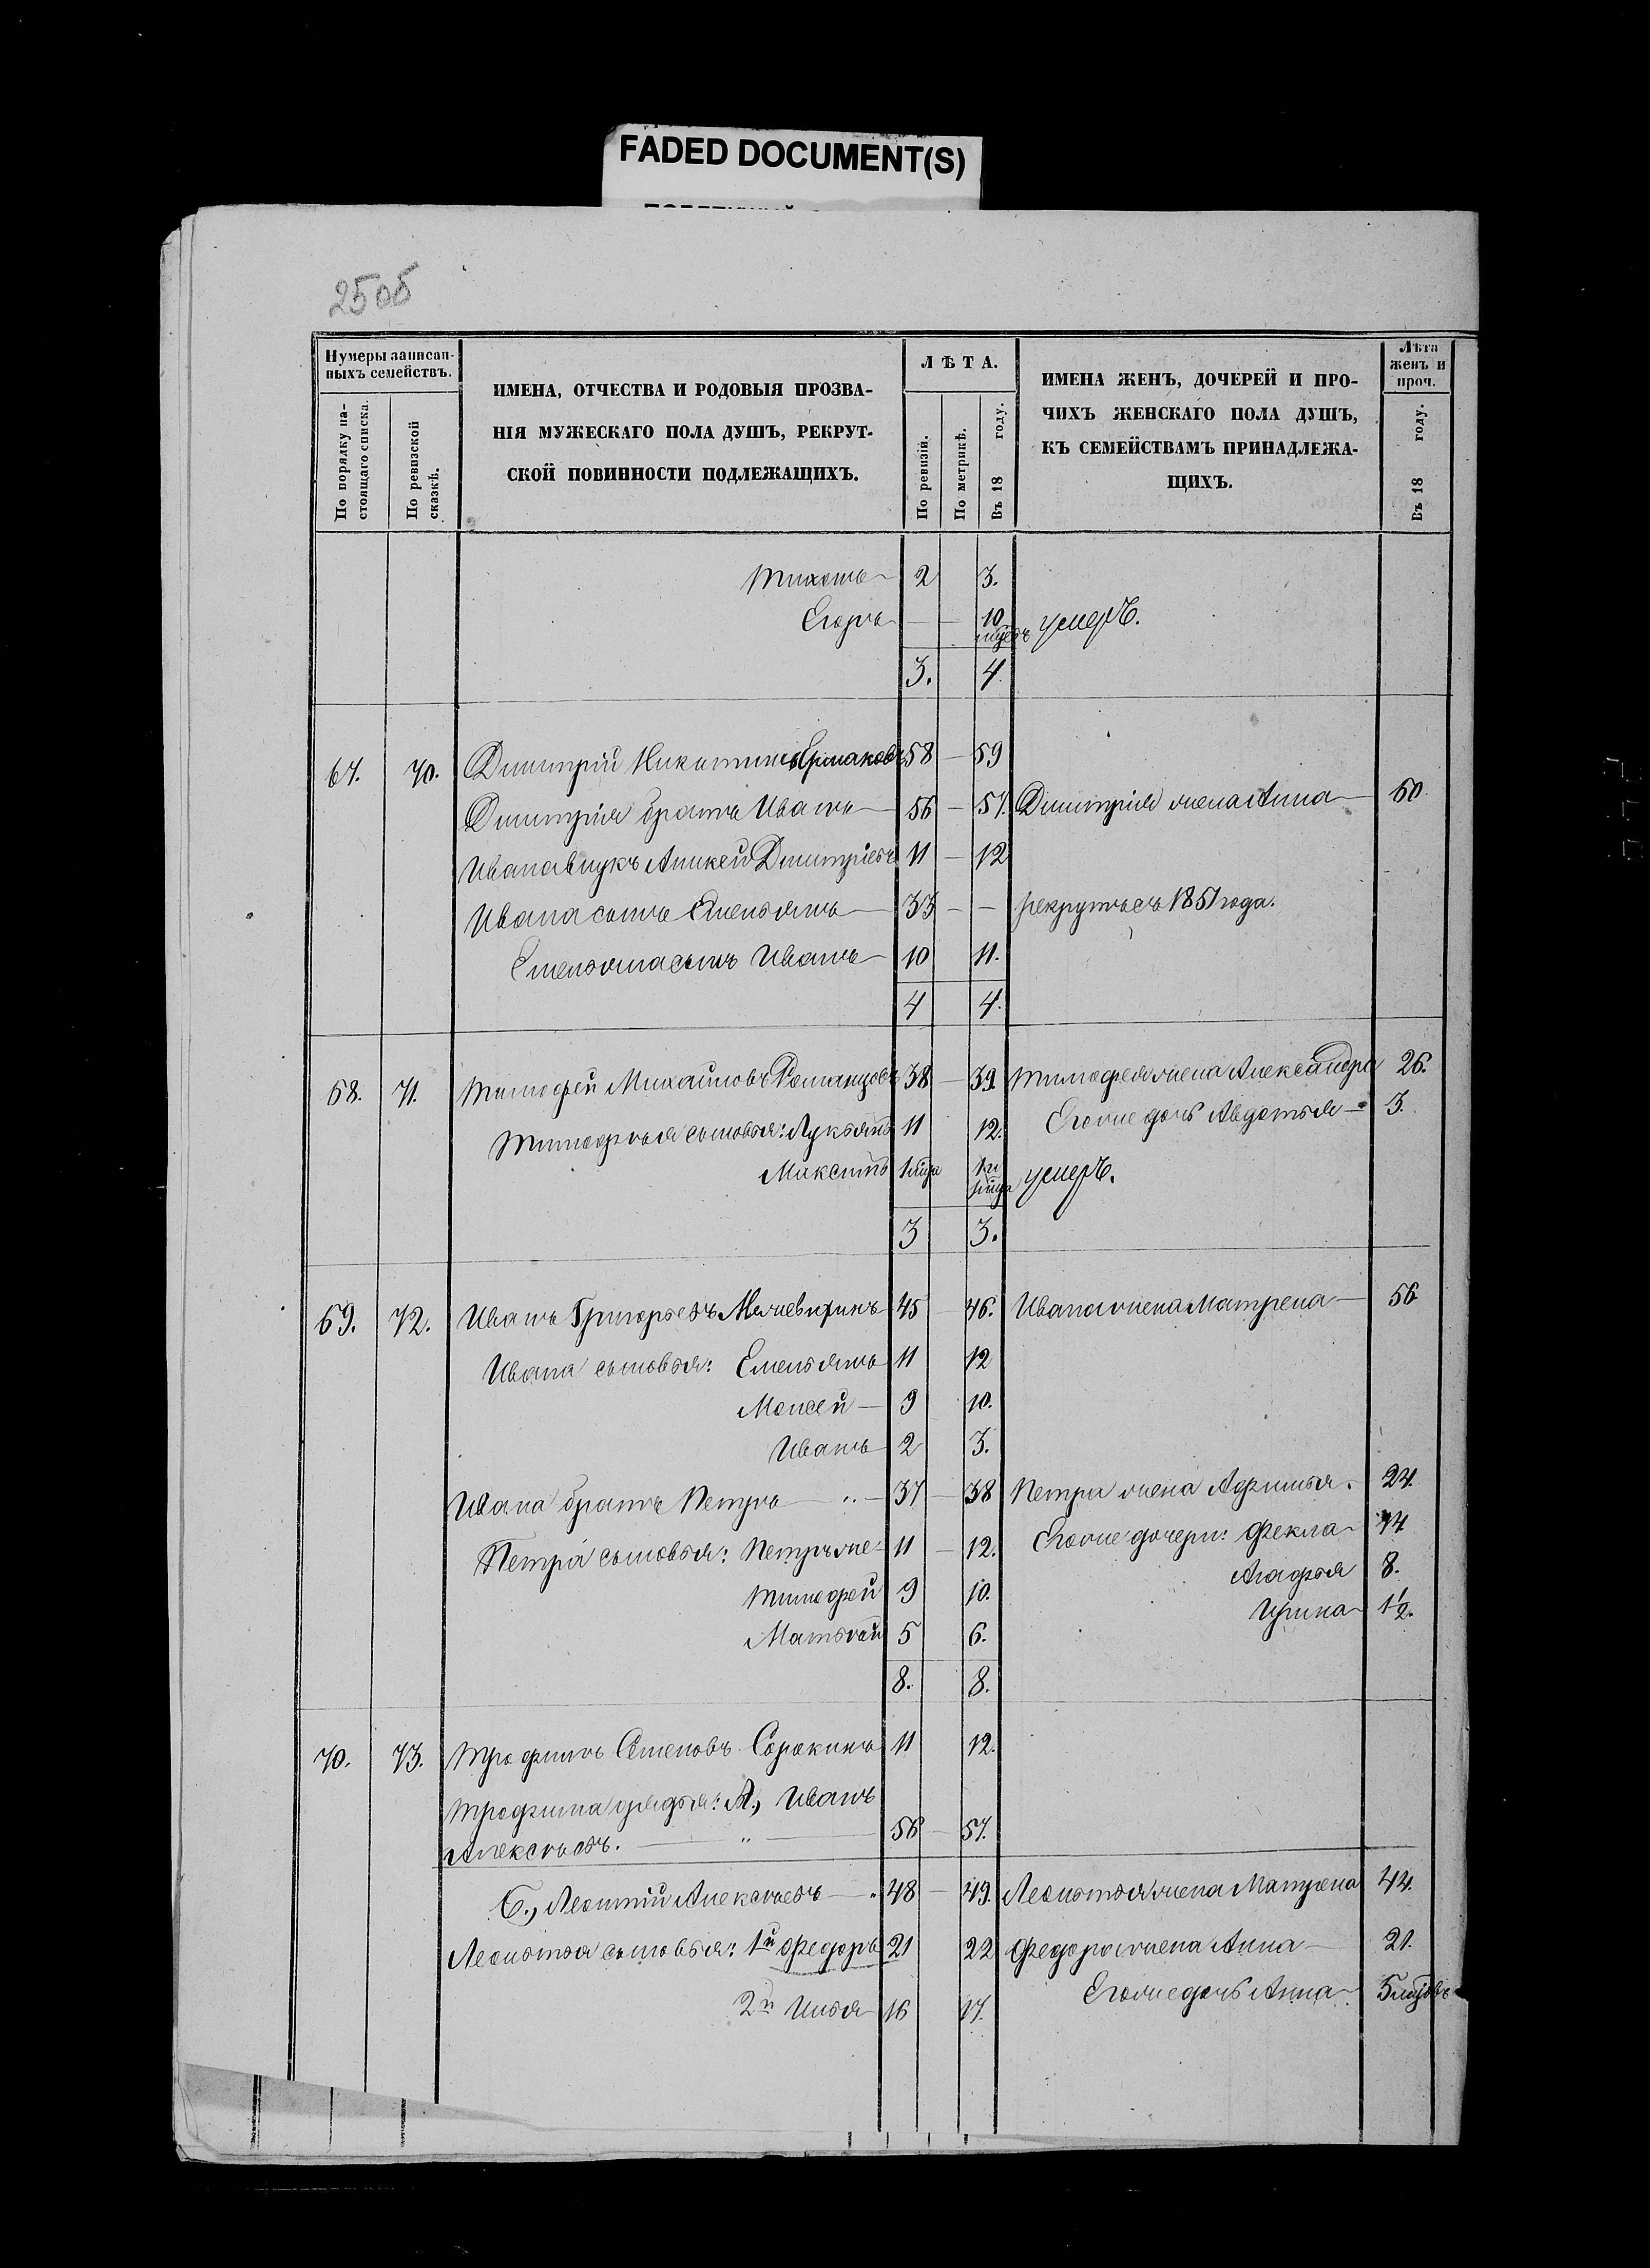 FADED DOCUMENT(S)
25об
Нумеры записан-
ныхъ семействъ.
По порядку на-
стоящаго списка.
По ревизской
сказкѣ.
ИМЕНА, ОТЧЕСТВА И РОДОВЫЯ ПРОЗВА-
НІЯ МУЖЕСКАГО ПОЛА ДУШЪ, РЕКРУТ-
СКОЙ ПОВИННОСТИ ПОДЛЕЖАЩИХЪ.
ЛѢТА.
По ревизіи.
По метрикѣ.
Въ 18 году.
ИМЕНА ЖЕНЪ, ДОЧЕРЕЙ И ПРО-
ЧИХЪ ЖЕНСКАГО ПОЛА ДУШЪ,
КЪ СЕМЕЙСТВАМЪ ПРИНАДЛЕЖА-
ЩИХЪ.
Лѣта
женъ и
проч.
Въ 18 году.
Тихонъ 2 3.
Егоръ — — 10 мцѣвъ умеръ.
3. 4
67. 70. Дмитрій Никитинъ Ермаковъ 58 — 59
Дмитрія братъ Иванъ — 56 — 57. Дмитрія жена Анна — 60
Ивана внукъ Аникей Дмитріевъ 11 — 12
Ивана сынъ Емельянъ — 33 — — рекрутъ съ 1851 года.
Емельяна сынъ Иванъ — 10 11.
4 4.
68. 71. Тимофей Михайловъ Романцовъ 38 — 39. Тимофея жена Александра 26.
Тимофея сыновья: Лукьянъ 11 12. Его же дочь Авдотья — 3.
Максимъ 1 мца 1 и мца умеръ.
3 3.
69. 72. Иванъ Григорьевъ 45 46. Ивана жена Матрена — 56
Ивана сыновья: Емельянъ 11 12
Моисей — 9 10.
Иванъ 2 3.
Ивана братъ Петръ — " — 37 — 38 Петра жена Афимья. 24.
Петра сыновья: Петръ же 11 — 12. Его же дочери: Фекла 14
Тимофей 9 10. Агафья 8.
Матвей 5 6. Ирина 1½.
8. 8.
70. 73. Трофимъ Семеновъ Сорокинъ 11 12.
Трофима дядья: А., Иванъ
Алексѣевъ. — " — 56 — 57.
Б., Леонтій Алексѣевъ — 48 — 49. Леонтья жена Матрена 44.
Леонтья сыновья: 1й Федоръ 21 22 Федора жена Анна — 21.
2й Илья 16 17. Его же дочь Анна 5 мцовъ